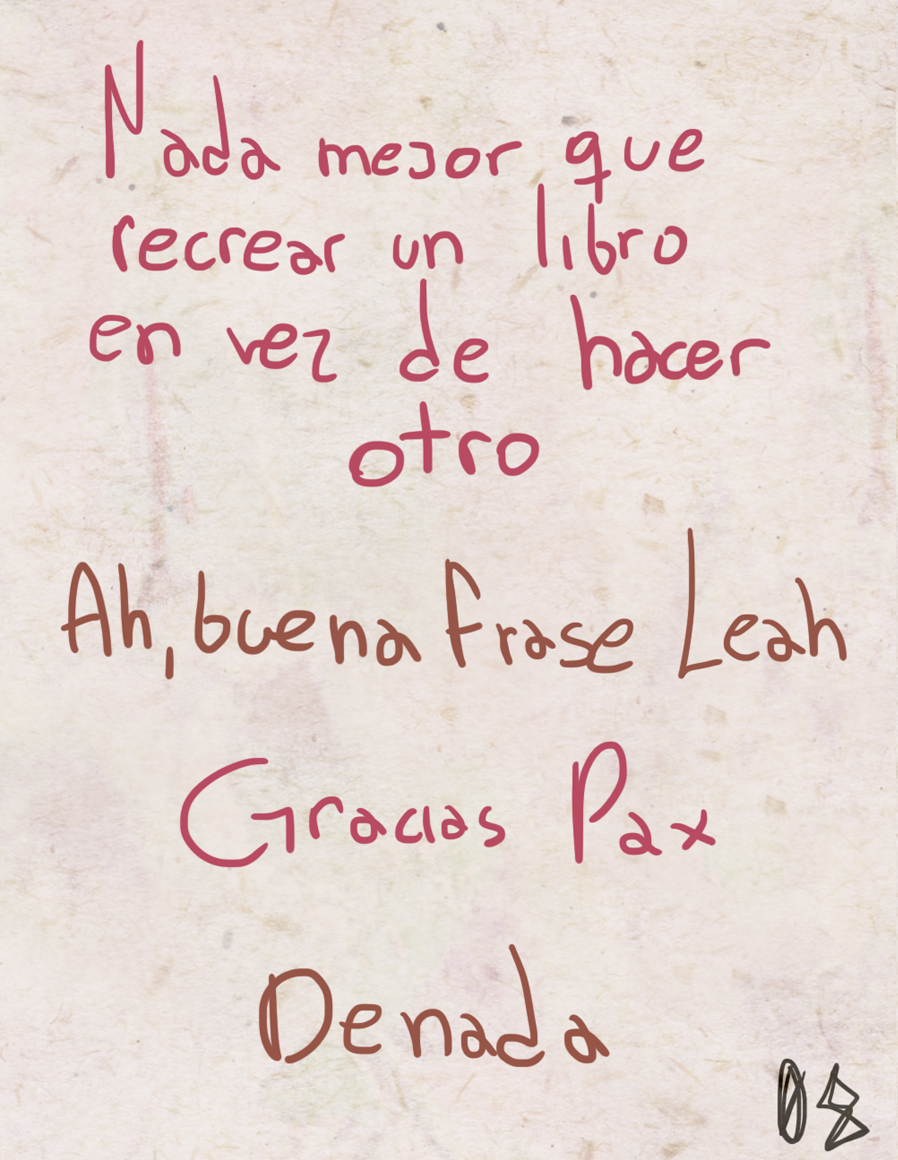 Nada mejor que
recrear un libro
en vez de hacer
otro
Ah, buena frase Leah
Gracias Pax
Denada
08